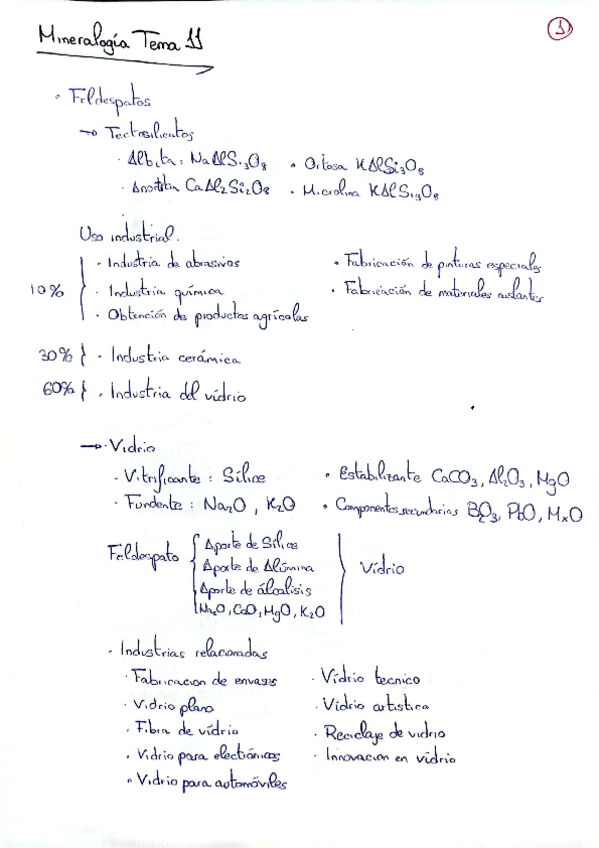 Mineralogía Tema 11
1
· Feldespatos
→ Tectosilicatos
· Albita: NaAlSi3O8 · Ortosa KAlSi3O8
· Anortita CaAl2Si2O8 · Microlina KAlSi3O8
Uso industrial.
· Industria de abrasivos · Fabricación de pinturas especiales
10% · Industria química · Fabricación de materiales aislantes
· Obtención de productos agrícolas
30% } · Industria cerámica
60% } · Industria del vidrio
→ · Vidrio
· Vitrificante: Sílice · Estabilizante CaCO3, Al2O3, MgO
· Fundente: Na2O, K2O · Componentes secundarios B2O3, PbO, MxO
Feldespato { Aporte de Sílice
Aporte de Alúmina } Vidrio
Aporte de álcalisis
Na2O, CaO, MgO, K2O
· Industrias relacionadas
· Fabricacion de envases · Vidrio tecnico
· Vidrio plano · Vidrio artistico
· Fibra de vidrio · Reciclaje de vidrio
· Vidrio para electrónicos · Innovacion en vidrio
· Vidrio para automóviles